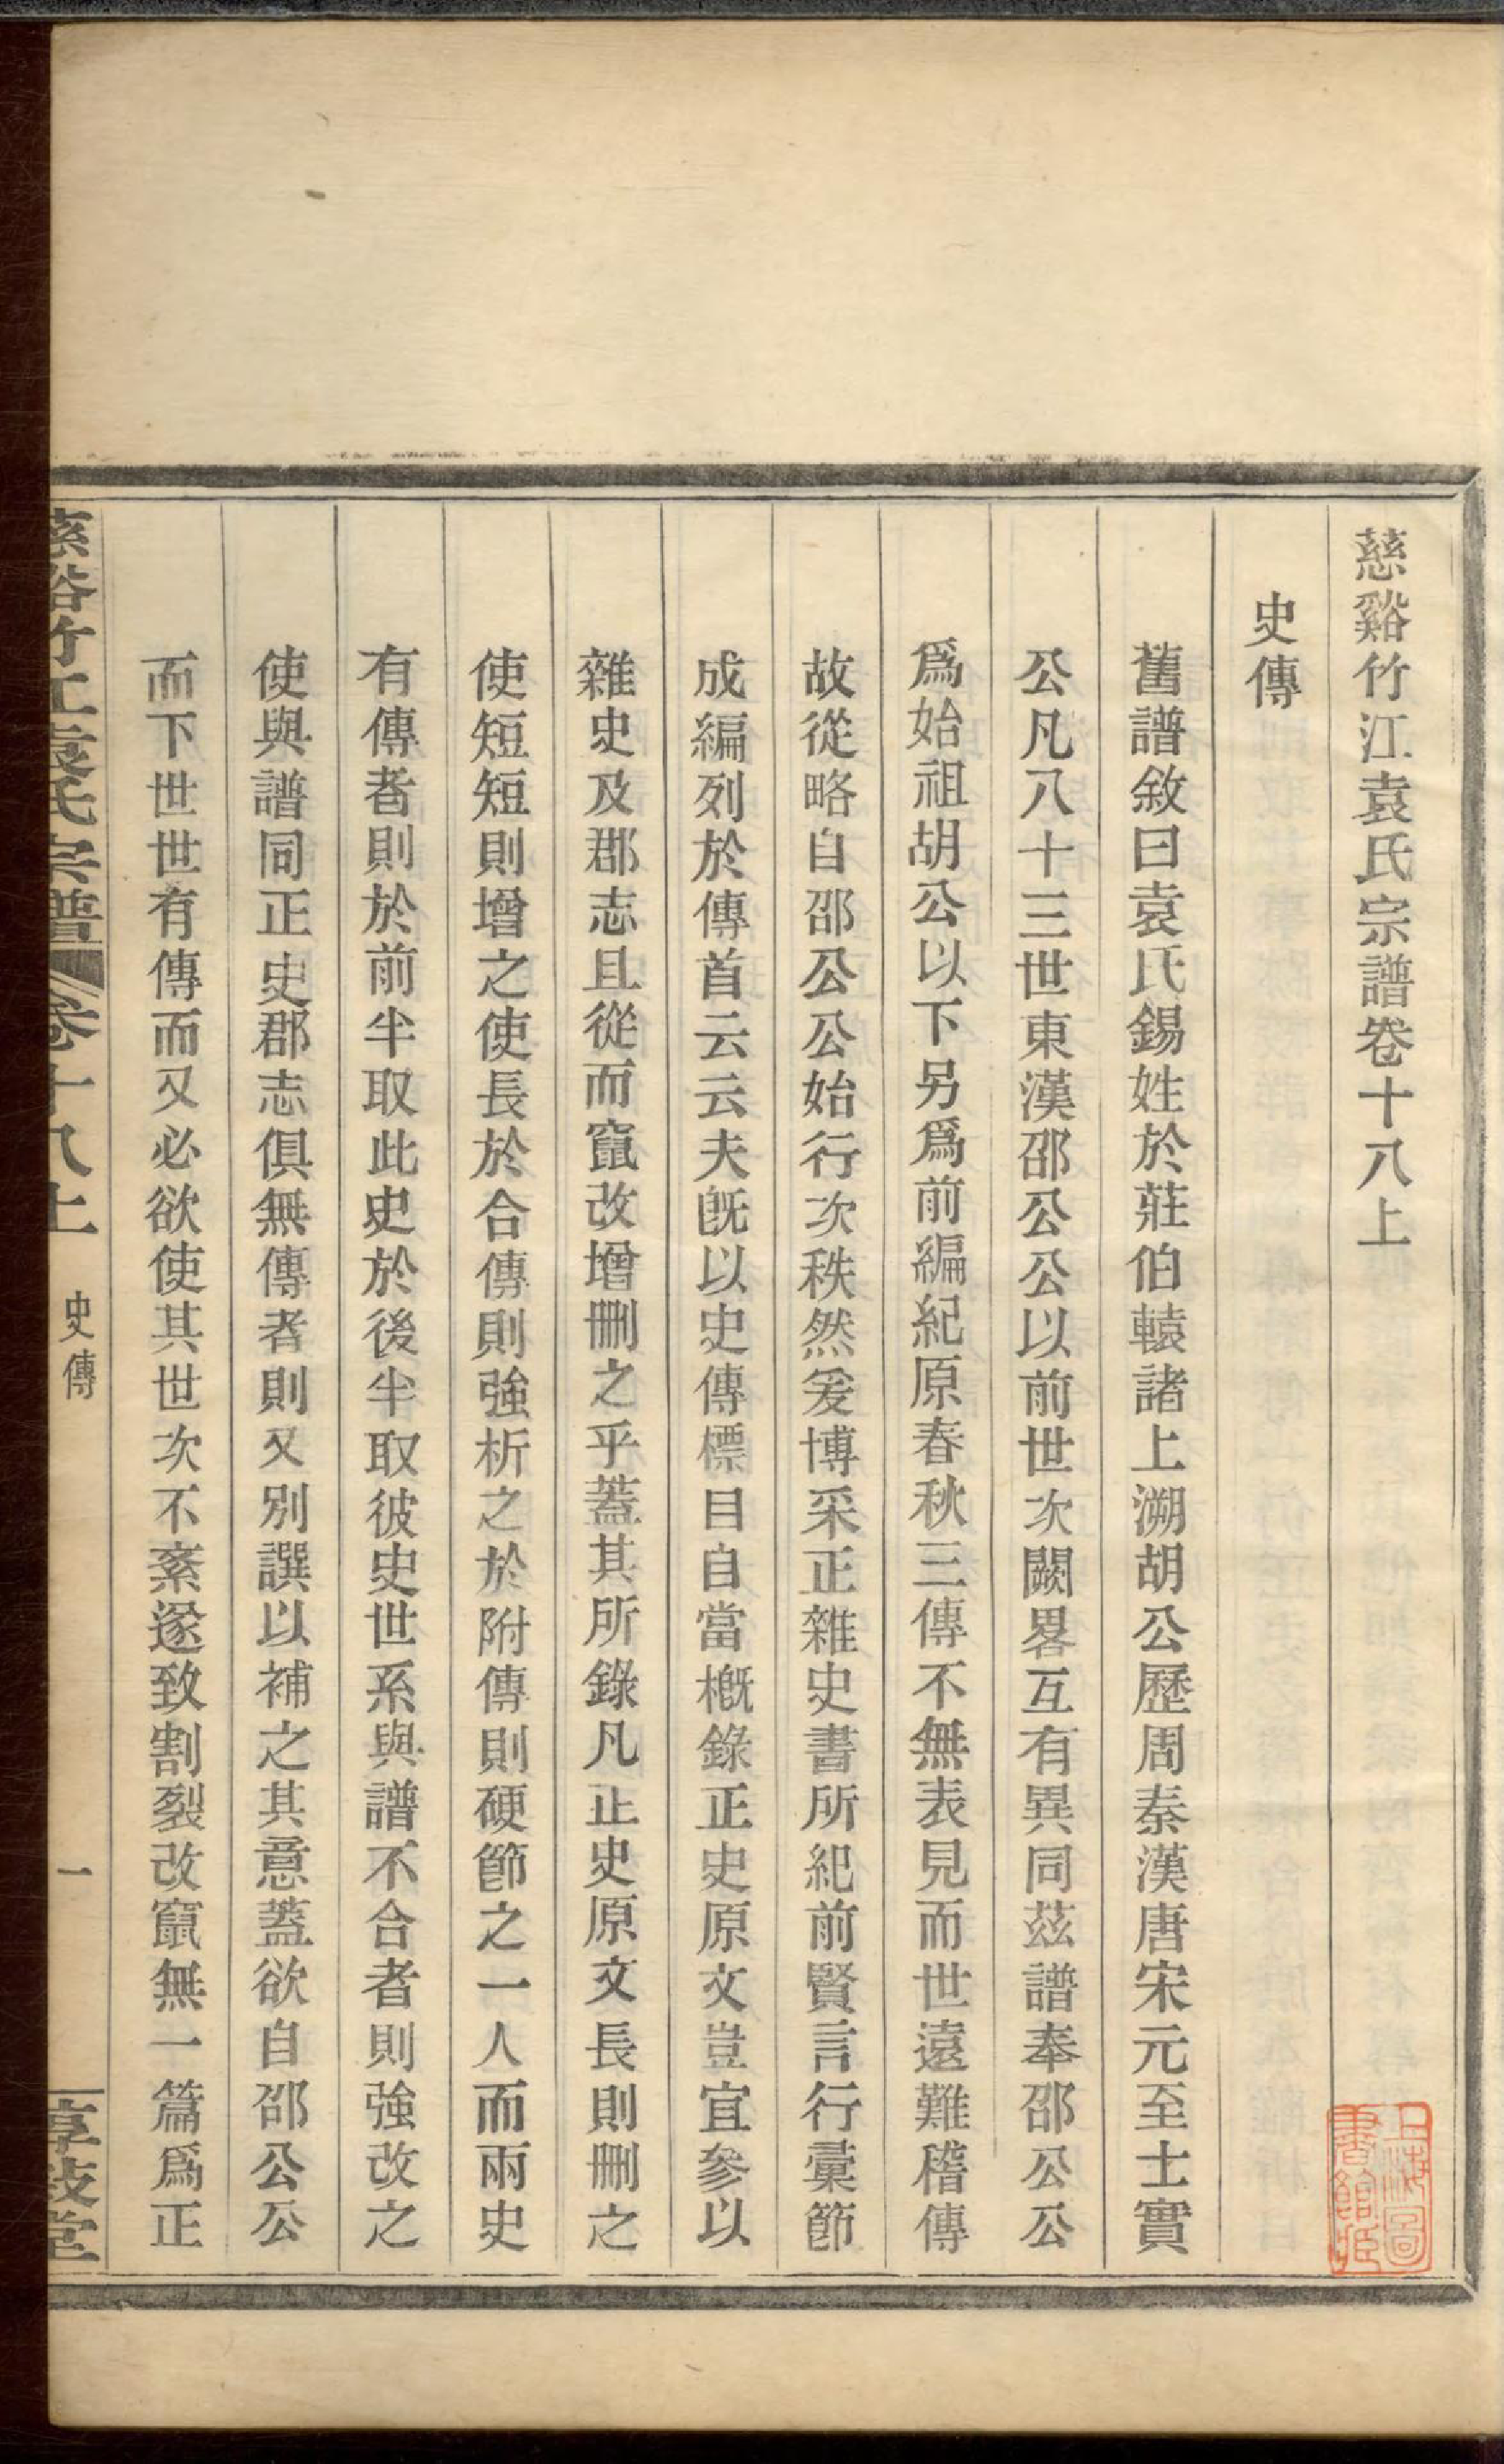 慈谿竹江袁氏宗譜卷十八上
史傳
舊譜敘曰袁氏錫姓於莊伯轅諸上溯胡公歷周秦漢唐宋元至士實
公凡八十三世東漢邵公公以前世次闕畧互有異同茲譜奉邵公公
爲始祖胡公以下另爲前編紀原春秋三傳不無表見而世遠難稽傳
故從略自邵公公始行次秩然爰博采正雜史書所紀前賢言行彙節
成編列於傳首云云夫旣以史傳標目自當槪錄正史原文豈宜參以
雜史及郡志且從而竄改增刪之乎蓋其所錄凡正史原文長則刪之
使短短則增之使長於合傳則強析之於附傳則硬節之一人而兩史
有傳者則於前半取此史於後半取彼史世系與譜不合者則強改之
使與譜同正史郡志俱無傳者則又別譔以補之其意蓋欲自邵公公
而下世世有傳而又必欲使其世次不紊遂致割裂改竄無一篇爲正
慈谿竹江袁氏宗譜 卷十八上 史傳 一 惇敍堂
上海圖書館藏